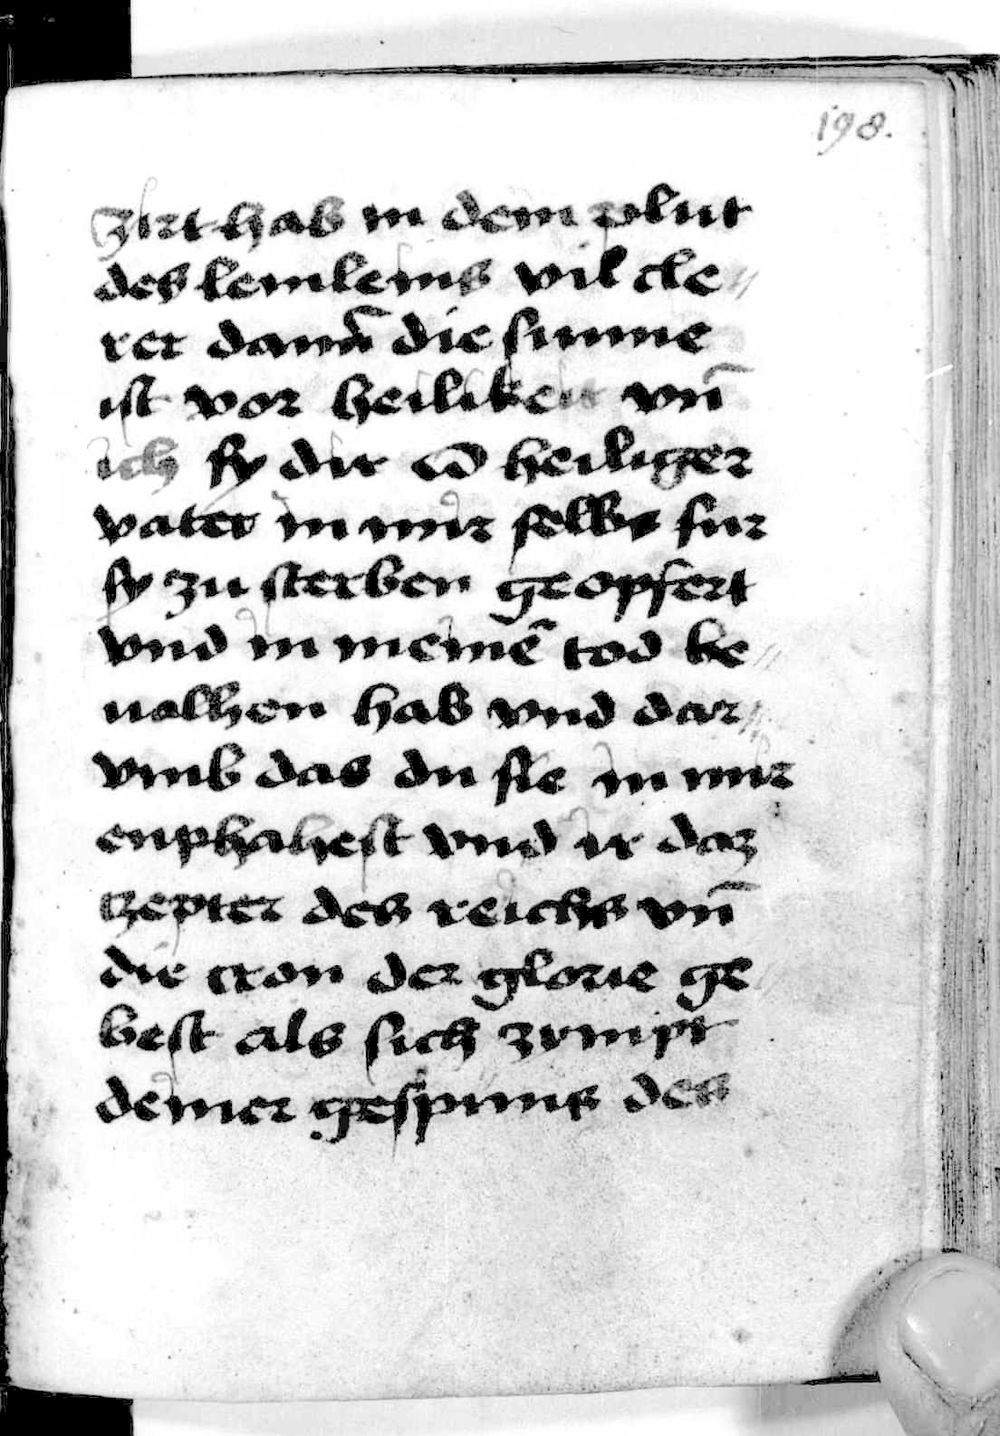 198.
zirt hab in dem plut
des lemleins vil cle⸗
rer dann̄ die sunne
ist vor heilikeit vn̄
ich sy dir O heiliger
vater in mir selbs fur
sy zu sterben geopfert
vnd in meinē tod be⸗
uolhen hab vnd dar⸗
vmb das du sie in mir
enphahest vnd ir daz
tzepter des reichs vn̄
die cron der glorie ge
best als sich zympt
deiner gespuns des